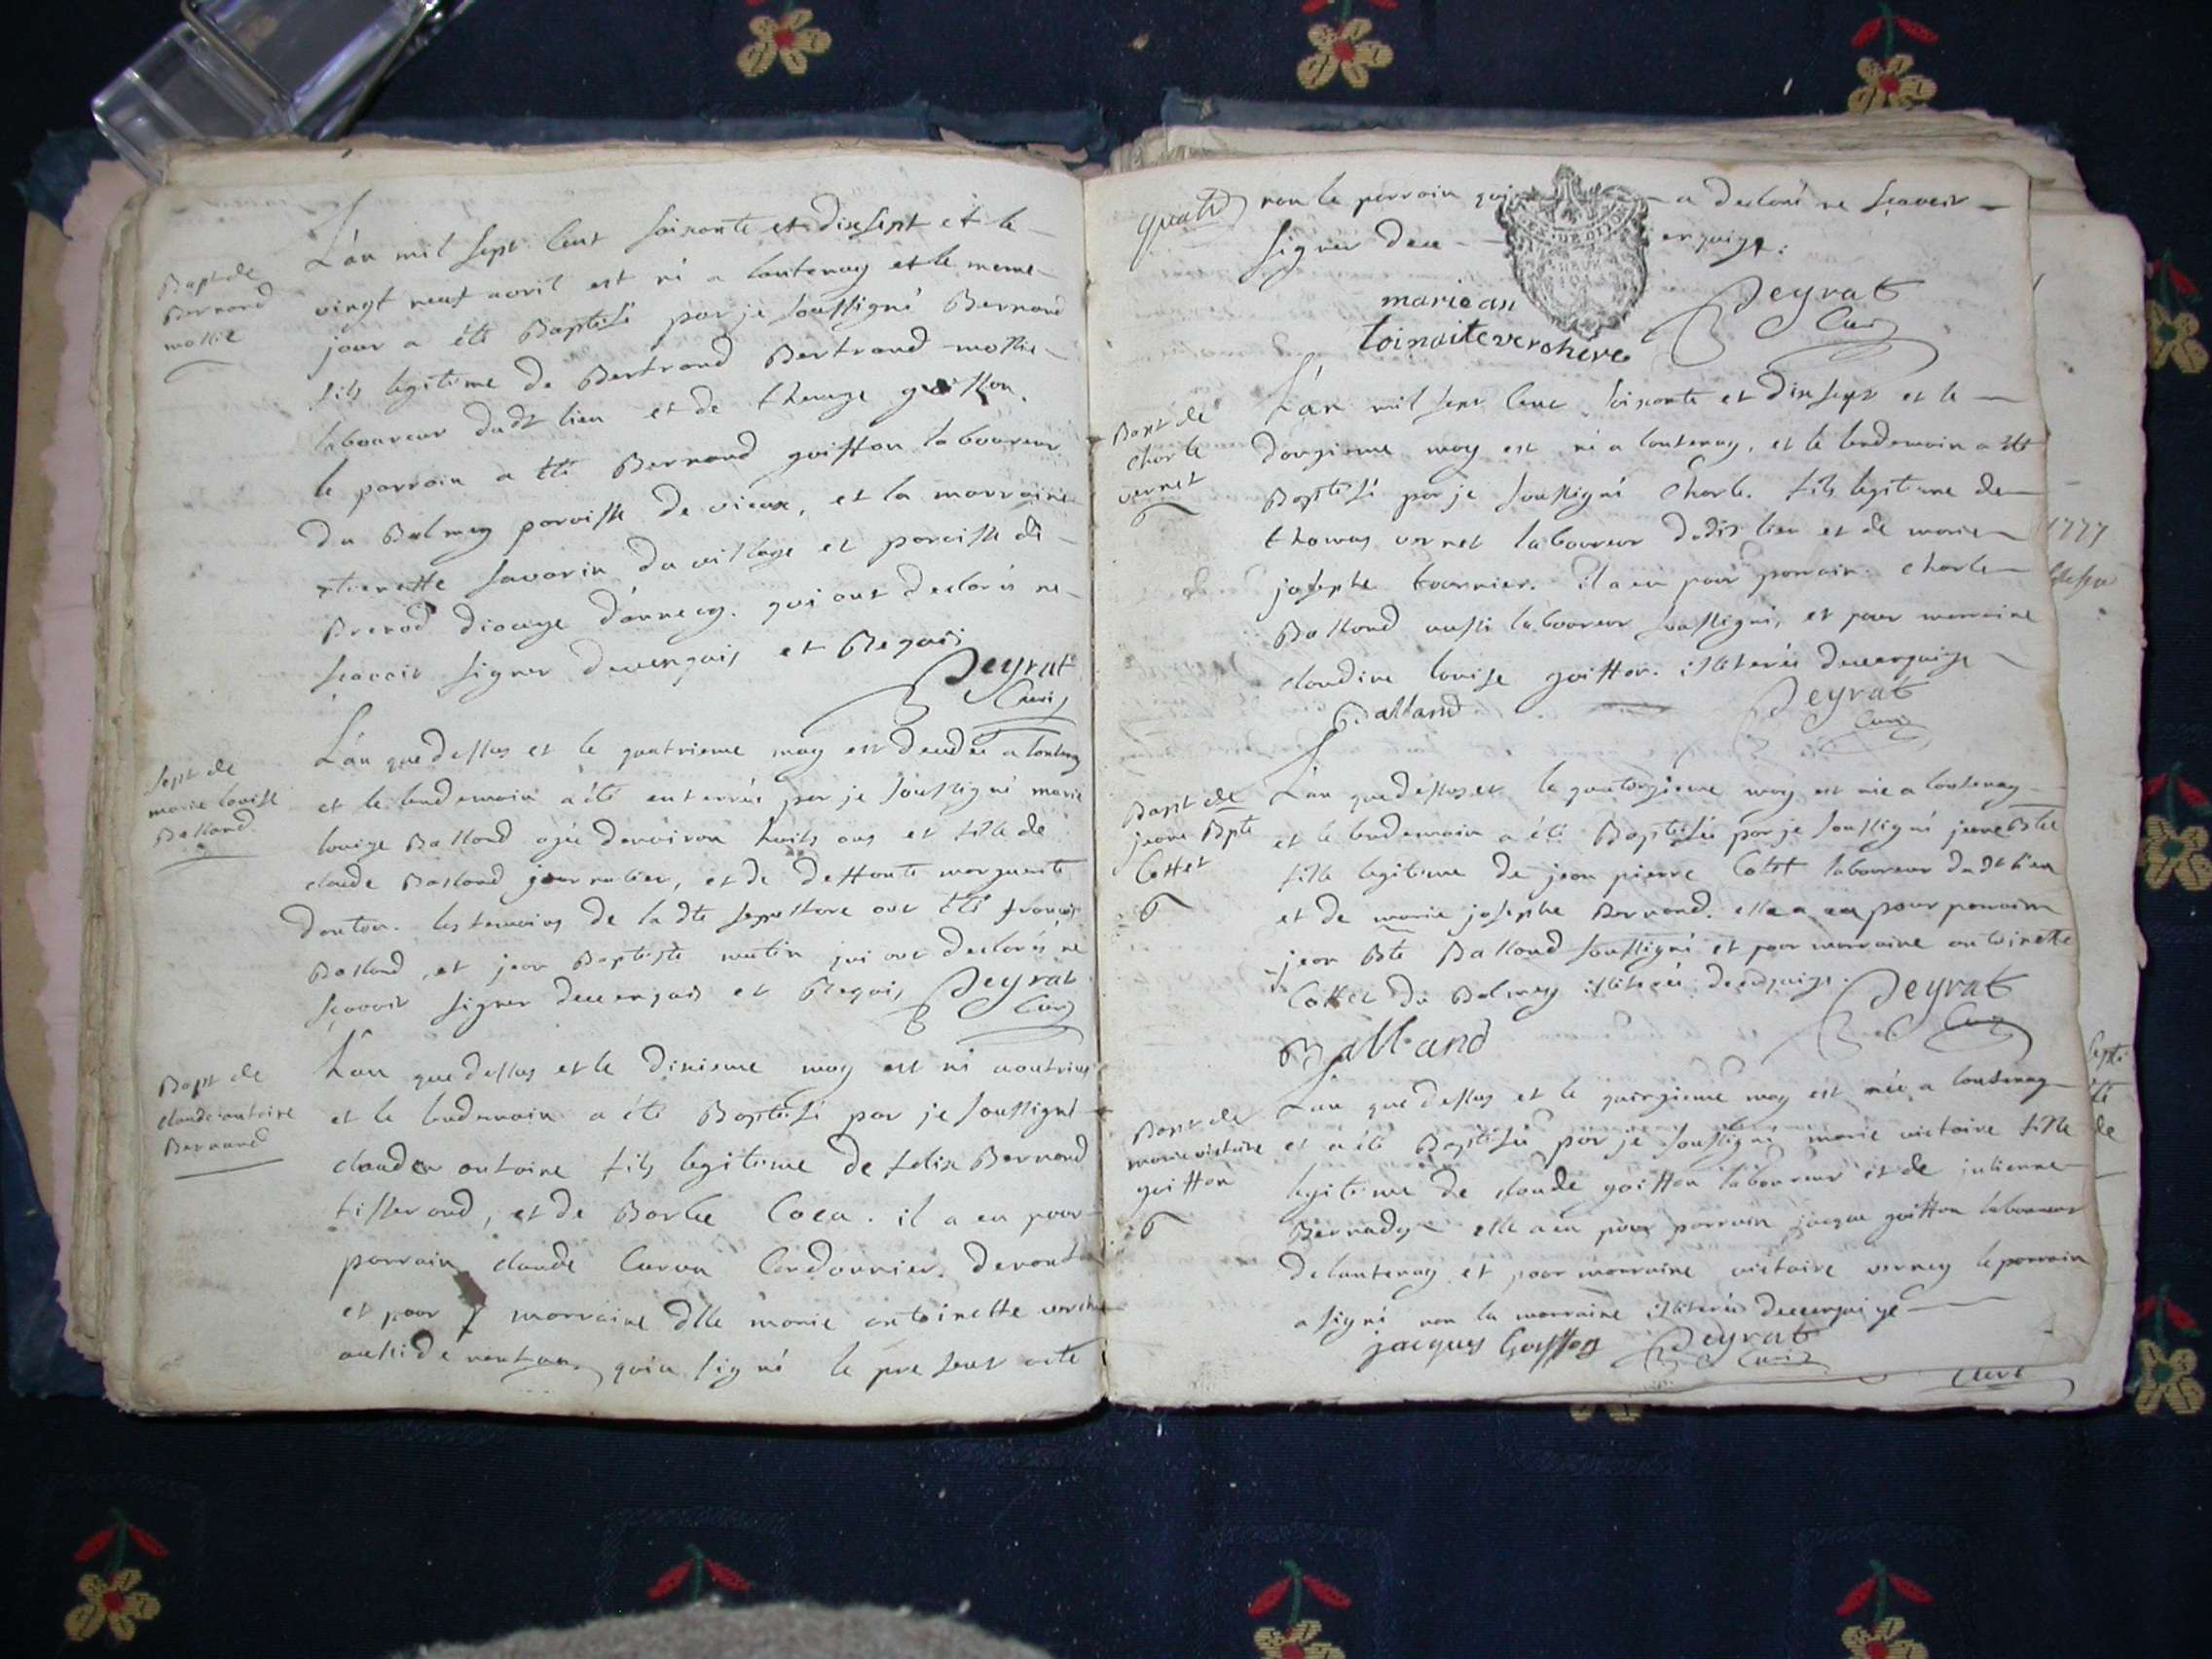 Bapt de
Bernard
mollie
L'an mil sept cent soixante et dixsept et le
vingt neuf avril est né a lantenay et le meme
jour a été Baptisé par je soussigné Bernard
fils legitime de Bertrand Bertrand mollie
laboureur dudt lieu et de therèze goiffon.
le parrain a été Bernard goiffon laboureur
du Balmey paroisse de vieux, et la marraine
savarin du village et paroisse de
Brenod diocèze d'annecy. qui ont declarés ne
sçavoir signer de ce enquis et Requis
Peyrat
Curé
Sept de
marie louise
Balland
L'an que dessus et le quatrieme may est decedée a lantenay
et le lendemain a été enterrée par je soussigné marie
louize Balland agée denviron huits ans et fille de
claude Balland journalier, et de deffunte marguerite
douton. les temoins de la dte sepulture ont été françois
Balland, et jean Baptiste mutin qui ont declarés ne
sçavoir signer de ce enquis et Requis Peyrat
Curé
Bapt de
claude antoine
Bernard
L'an que dessus et le dixieme may est né
et le lendemain a été Baptisé par je soussigné
claude antoine fils legitime de felix Bernard
tisserand, et de Barbe Coca. il a eu pour
parrain claude Caron Cordonnier.
et pour marraine dlle marie antoinette
aussi de qui a signé le present acte
non le parrain qui a declaré ne sçavoir
signer de ce enquize.
marie an
toinaite verchere
Peyrat
Curé
Bapt de
charle
vernet
L'an mil sept cent soixante et dixsept et le
douzieme may est né a lantenay, et le lendemain a été
Baptisé par je soussigné charle fils legitime de
thomas vernet laboureur dudit lieu et de marie
josephe tournier. il a eu pour parrain charle
Balland aussi laboureur soussigné, et pour marraine
claudine louise goiffon. illiterée de ce enquize
Balland
Peyrat
Curé
Bapt de
jeane Bpte
Cottet
L'an que dessus et le quatorzieme may est née a lantenay
et le lendemain a été Baptisée par je soussigné jeane Bte
fille legitime de jean pierre Cottet laboureur dudt lieu
et de marie josephe Bernard. elle a eu pour parrain
jean Bte Balland soussigné et pour marraine antoinette
Cottet du Balmey illiterée de ce enquize. Peyrat
Curé
Balland
Bapt de
marie victoire
goiffon
L'an que dessus et le quinzieme may est née a lantenay
et a été Baptisée par je soussigné marie victoire fille
legitime de claude goiffon laboureur et de julienne
elle a eu pour parrain jacque goiffon laboureur
de lantenay et pour marraine victoire vernay le parrain
a signé non la marraine illiterée de ce enquizé
jacques Goiffon Peyrat
Curé
1777